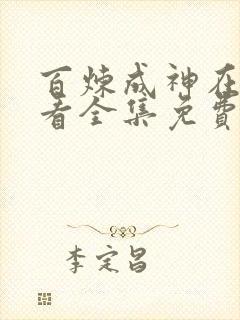 百炼成神在
看全集免费
李定昌